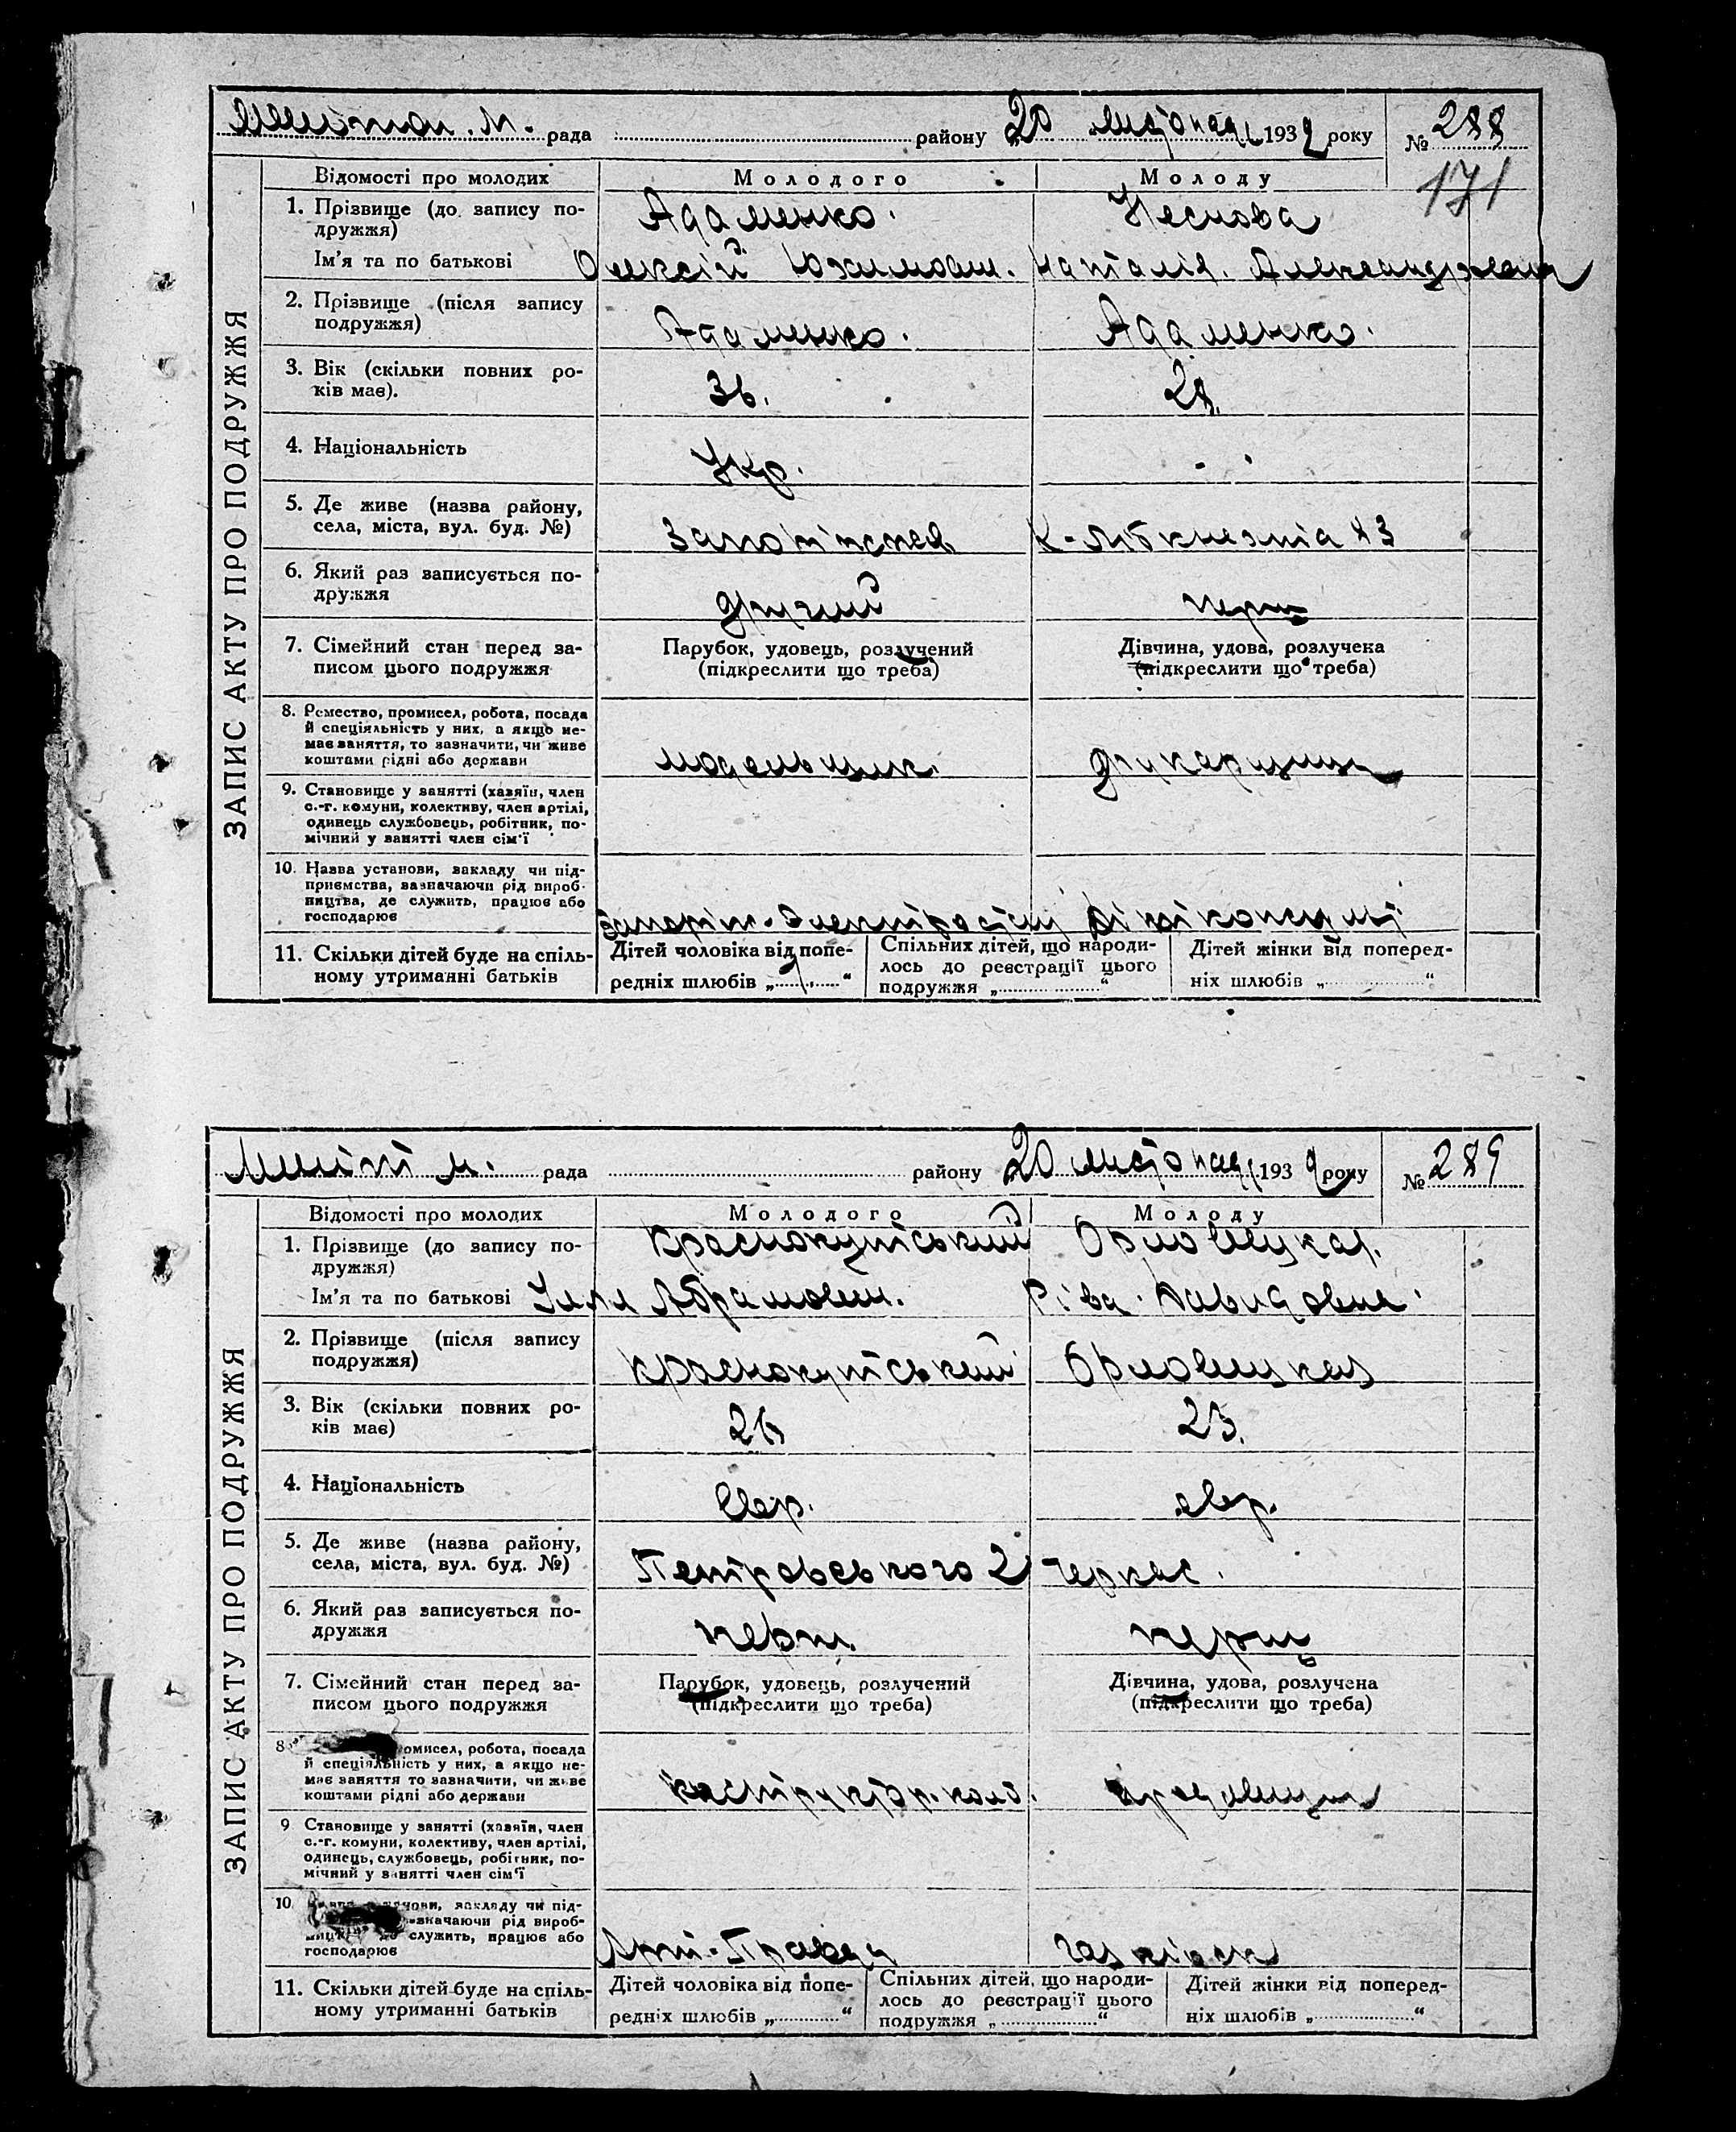 рада району 20 листопада 1932 року № 288
171
ЗАПИС АКТУ ПРО ПОДРУЖЖЯ
Відомості про молодих Молодого Молоду
1. Прізвище (до запису по-
дружжя) Адаменко.
Ім'я та по батькові Олексій Наталія.
2. Прізвище (після запису
подружжя) Адаменко. Адаменко.
3. Вік (скільки повних ро-
ків має). 36.
4. Національність Укр.
5. Де живе (назва району,
села, міста, вул. буд. №) К-Лібкнехта 83
6. Який раз записується по-
дружжя другий перш
7. Сімейний стан перед за-
писом цього подружжя
Парубок, удовець, розлучений
(підкреслити що треба)
Дівчина, удова, розлучека
(підкреслити що треба)
8. Ремество, промисел, робота, посада
й спеціяльність у них, а якщо не-
має заняття, то зазначити, чи живе
коштами рідні або держави
модельщик.
9. Становище у занятті (хазяїн, член
с.-г. комуни, колективу, член артілі,
одинець службовець, робітник, по-
мічний у занятті член сім'ї
10. Назва установи, закладу чи під-
приємства, зазначаючи рід вироб-
ництва, де служить, працює або
господарює
11. Скільки дітей буде на спіль-
ному утриманні батьків
Дітей чоловіка від попе-
редніх шлюбів „ 1 “
Спільних дітей, що народи-
лось до реєстрації цього
подружжя „ “
Дітей жінки від поперед-
ніх шлюбів „ “
рада району 20 листопада 1932 року № 289
ЗАПИС АКТУ ПРО ПОДРУЖЖЯ
Відомості про молодих Молодого Молоду
1. Прізвище (до запису по-
дружжя) Краснокутський
Ім'я та по батькові Ілля Абрамович. Ріва Давидовна.
2. Прізвище (після запису
подружжя) Краснокутський
3. Вік (скільки повних ро-
ків має) 26 23.
4. Національність Євр. євр.
5. Де живе (назва району,
села, міста, вул. буд. №) Петровського 2 Черкас.
6. Який раз записується по-
дружжя перш. перш
7. Сімейний стан перед за-
писом цього подружжя
Парубок, удовець, розлучений
(підкреслити що треба)
Дівчина, удова, розлучена
(підкреслити що треба)
8 омисел, робота, посада
й спеціяльність у них, а якщо не-
має заняття то зазначити, чи живе
коштами рідні або держави
9 Становище у занятті (хазяїн, член
с.-г. комуни, колективу, член артілі,
одинець, службовець, робітник, по-
мічний у занятті член сім'ї
10. закладу чи під-
рід вироб-
служить, працює або
господарює
11. Скільки дітей буде на спіль-
ному утриманні батьків
Дітей чоловіка від попе-
редніх шлюбів „ “
Спільних дітей, що народи-
лось до реєстрації цього
подружжя „ “
Дітей жінки від поперед-
ніх шлюбів „ “